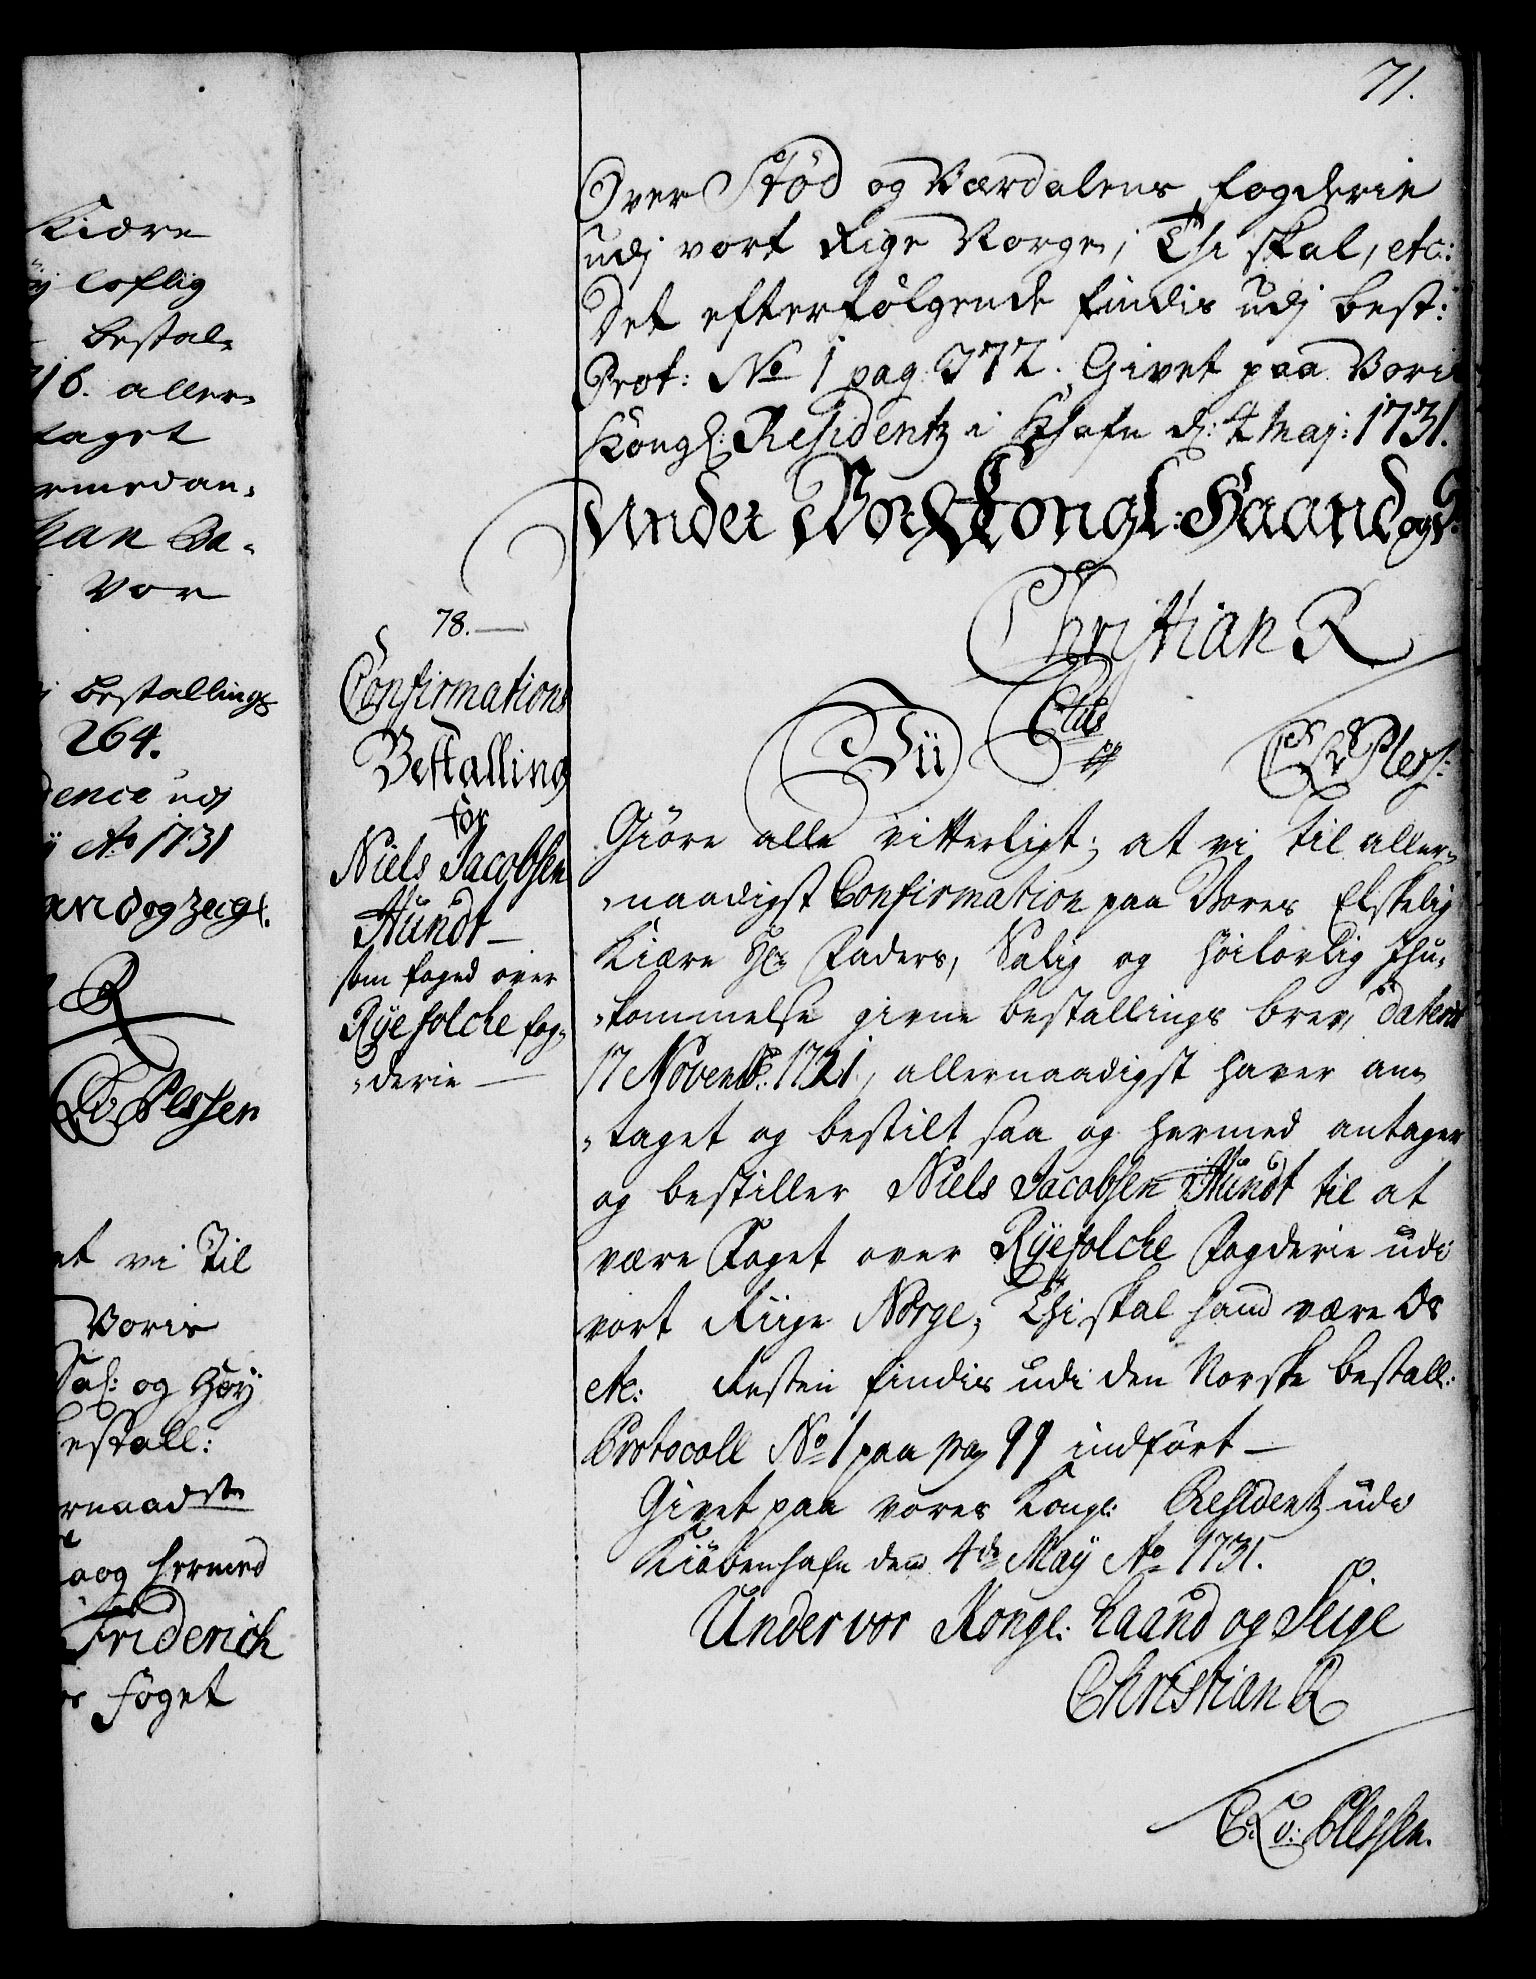 Kiære
löflig
bestal-
16. aller-
taget
ermedan-
han be-
Vor
bestallings
264.
dence udj
Ao 1731
and og Zeigl.
R
CLv Plessen
at vi til
Voris
Sal: og Høy
bestall:
ernaadste
aaog hermed
Friderich
Foget
71.
Over Stöd og Værdalens fogderie
udj vort Rige Norge, Thi skal, etc:
Det efterfölgende findis udj best:
Prot: No 1 pag. 272. Givet paa Voris
Kongl: Residentz i Khafn d: 4 Maj: 1731.
Under Vor Kongl: Haand og S.
Christian R
CLv Pless:
78.
Confirmations
Bestalling
for
Niels Jacobsen
Hundt
som foged over
Ryefolcke fog-
-derie
Vii
Giöre alle vitterligt; at vi til aller-
-naadigst Confirmation paa Vores Elskelig
Kiære Hr Faders, Salig og höilovlig Ihu-
-kommelse givne bestallings brev, daterit
17 Novemb: 1721, allernaadigst haver an-
-taget og bestilt saa og hermed antager
og bestiller Niels Jacobsen Hundt til at
være Foget over Ryefolcke Fogderie udi
vort Riige Norge, Thi skal hand være Os
etc: Resten findis udi den Norske bestall:
Protocoll No 1 paa pag 99 indfört
Givet paa vores Kongl: Residentz udi
Kiöbenhafn den 4de Maÿ Ao 1731.
Under vor Kongl: haand og Seigl
Christian R
C: L: v: Plessen.